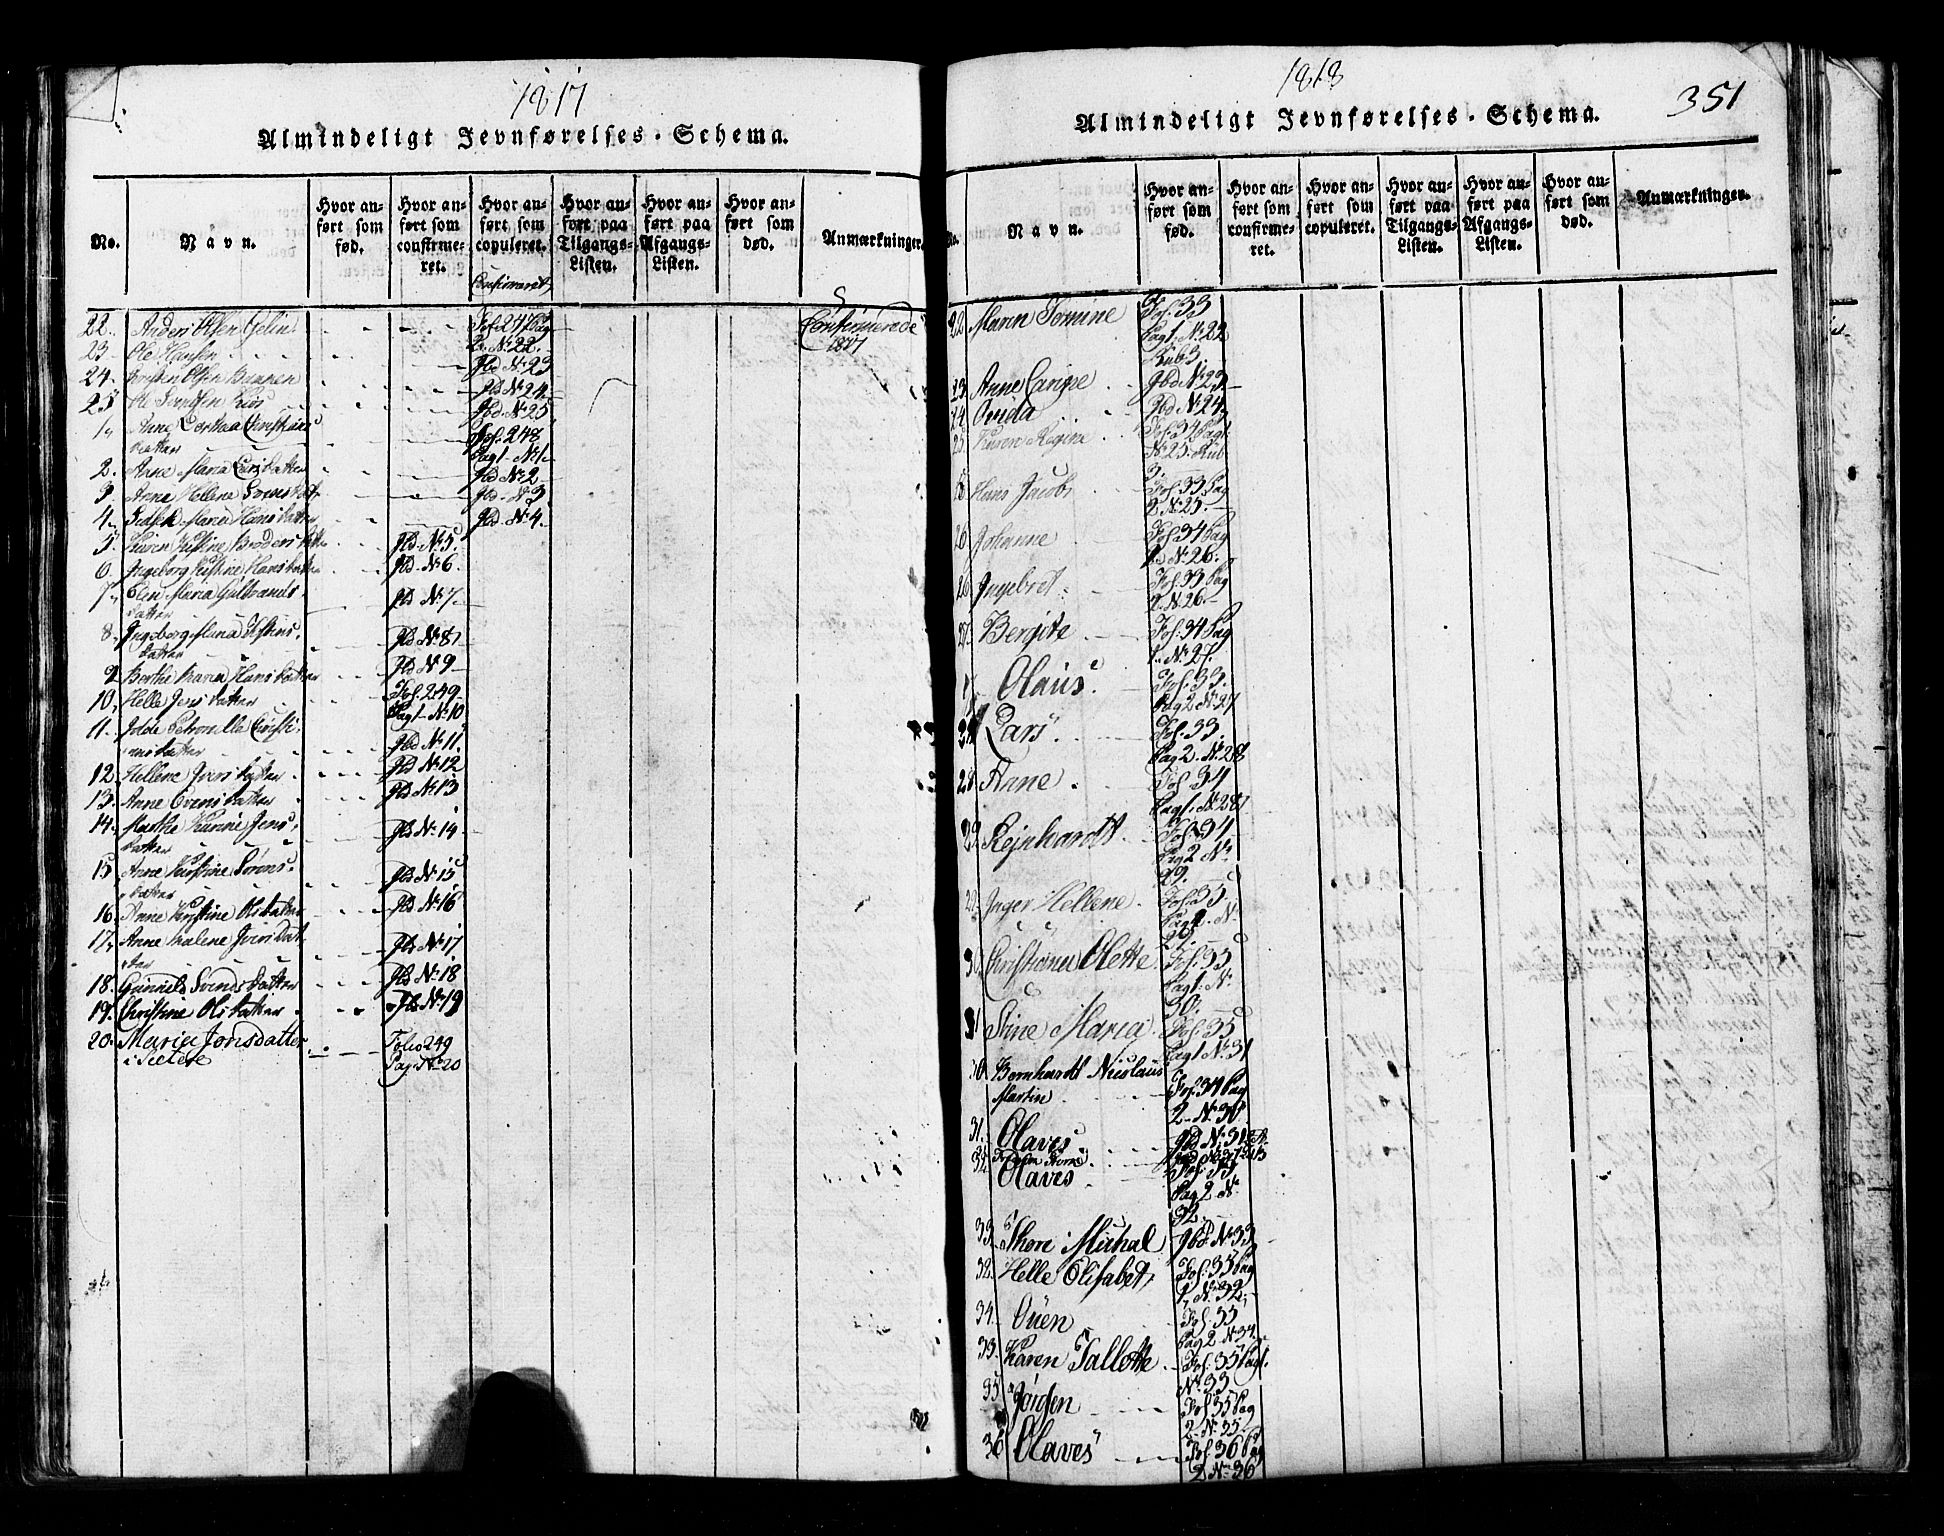 1817
Almindeligt Jevnførelses-Schema.
No.
Navn.
Hvor anført som fød.
Hvor anført som confirmeret.
Hvor anført som copuleret.
Hvor anført paa Tilgangs-Listen.
Hvor anført paa Afgangs-Listen.
Hvor anført som død.
Anmærkninger.
Confirmeret
22. Anders Olsen Fol. 247 Pag Confirmerede
2. No. 22. 1817
23 Ole Hansen Ibd No. 23
24. Olsen Ibd No. 24
25 Ole Ibd No. 25
1. Anne Dorthea Christians Fol. 248
datter Pag 1 No. 1
2. Anne Maria datter Ibd No. 2
3. Anne Hellene Svensdatter Ibd No. 3
4. Maria Hansdatter Ibd No. 4
5. Karen Kirstine datter Ibd No. 5
6. Ingeborg Kirstine Hansdatter Ibd No. 6
7. Elen Maria Gulbrands Ibd No. 7
datter
8. Ingeborg Ibd No. 8
datter
9 Berthe Maria Hansdatter Ibd No. 9
10. Helle Jensdatter Fol. 249
Pag 1 No. 10
11. Petronille Christi
ansdatter Ibd No. 11
12. Hellene Iversdatter Ibd No. 12
13. Anne Evensdatter Ibd No. 13
14. Marthe Karine Jens Ibd No. 14
datter
15 Anne Kirstine Sørens Ibd No. 15
datter
16. Anne Kirstine Olsdatter Ibd No. 16
17. Anne Malene Iversdat Ibd No. 17
ter
18. Gunnild Svendsdatter Ibd No. 18
19. Christine Olsdatter Ibd No. 19
20. Maria Jonsdatter Folio 249
i Sætere Pag. 1 No. 20
1818
351
Almindeligt Jevnførelses-Schema.
No.
Navn.
Hvor anført som fød.
Hvor anført som confirmeret.
Hvor anført som copuleret.
Hvor anført paa Tilgangs-Listen.
Hvor anført paa Afgangs-Listen.
Hvor anført som død.
Anmærkninger.
22 Maren Fol. 33
Pag 1. No. 22
Rub 3.
23 Anne Ibd No. 23
24 Ovida Ibd No. 24
25 Karen Regine Fol. 34 Pag 1
No 25. Rub
3.
Hans Jacob Fol. 33 Pag
2 No. 25.
26 Johanne Fol. 34 Pag
1 No. 26.
26 Ingebret Fol. 33 Pag
2. No. 26.
27. Bergite Fol. 34 Pag
1. No. 27.
Olaus Fol. 33.
Pag 2 No. 27
28 Lars Fol. 33.
Pag 2. No. 28
28 Anne Fol. 34
Pag 1. No. 28
29 Rejnhardt Fol. 34
Pag 2 No.
29.
29 Inger Hellene Fol. 35
Pag 1. No.
29.
30 Christiana Olette Fol. 35
Pag 1. No.
30.
31 Stine Maria Fol. 35
Pag 1 No. 31
30 Bernhardt Nicolaus
Martin Fol. 34 Pag
2 No. 30
31. Olaves Ibd No. 31
32. Olaves
Pag 2 No.
32.
33. Thore Michal Ibd. No. 33
32. Helle Elisabet Fol. 35 Pag
1. No. 32
34. Ouen Fol. 35
Pag 2 No. 34
33. Karen Tallette Fol. 35 Pag 1.
No. 33
35 Jørgen Fol. 35 Pag
2 No. 35
36 Olaves Fol. 36 Pag
2 No. 36